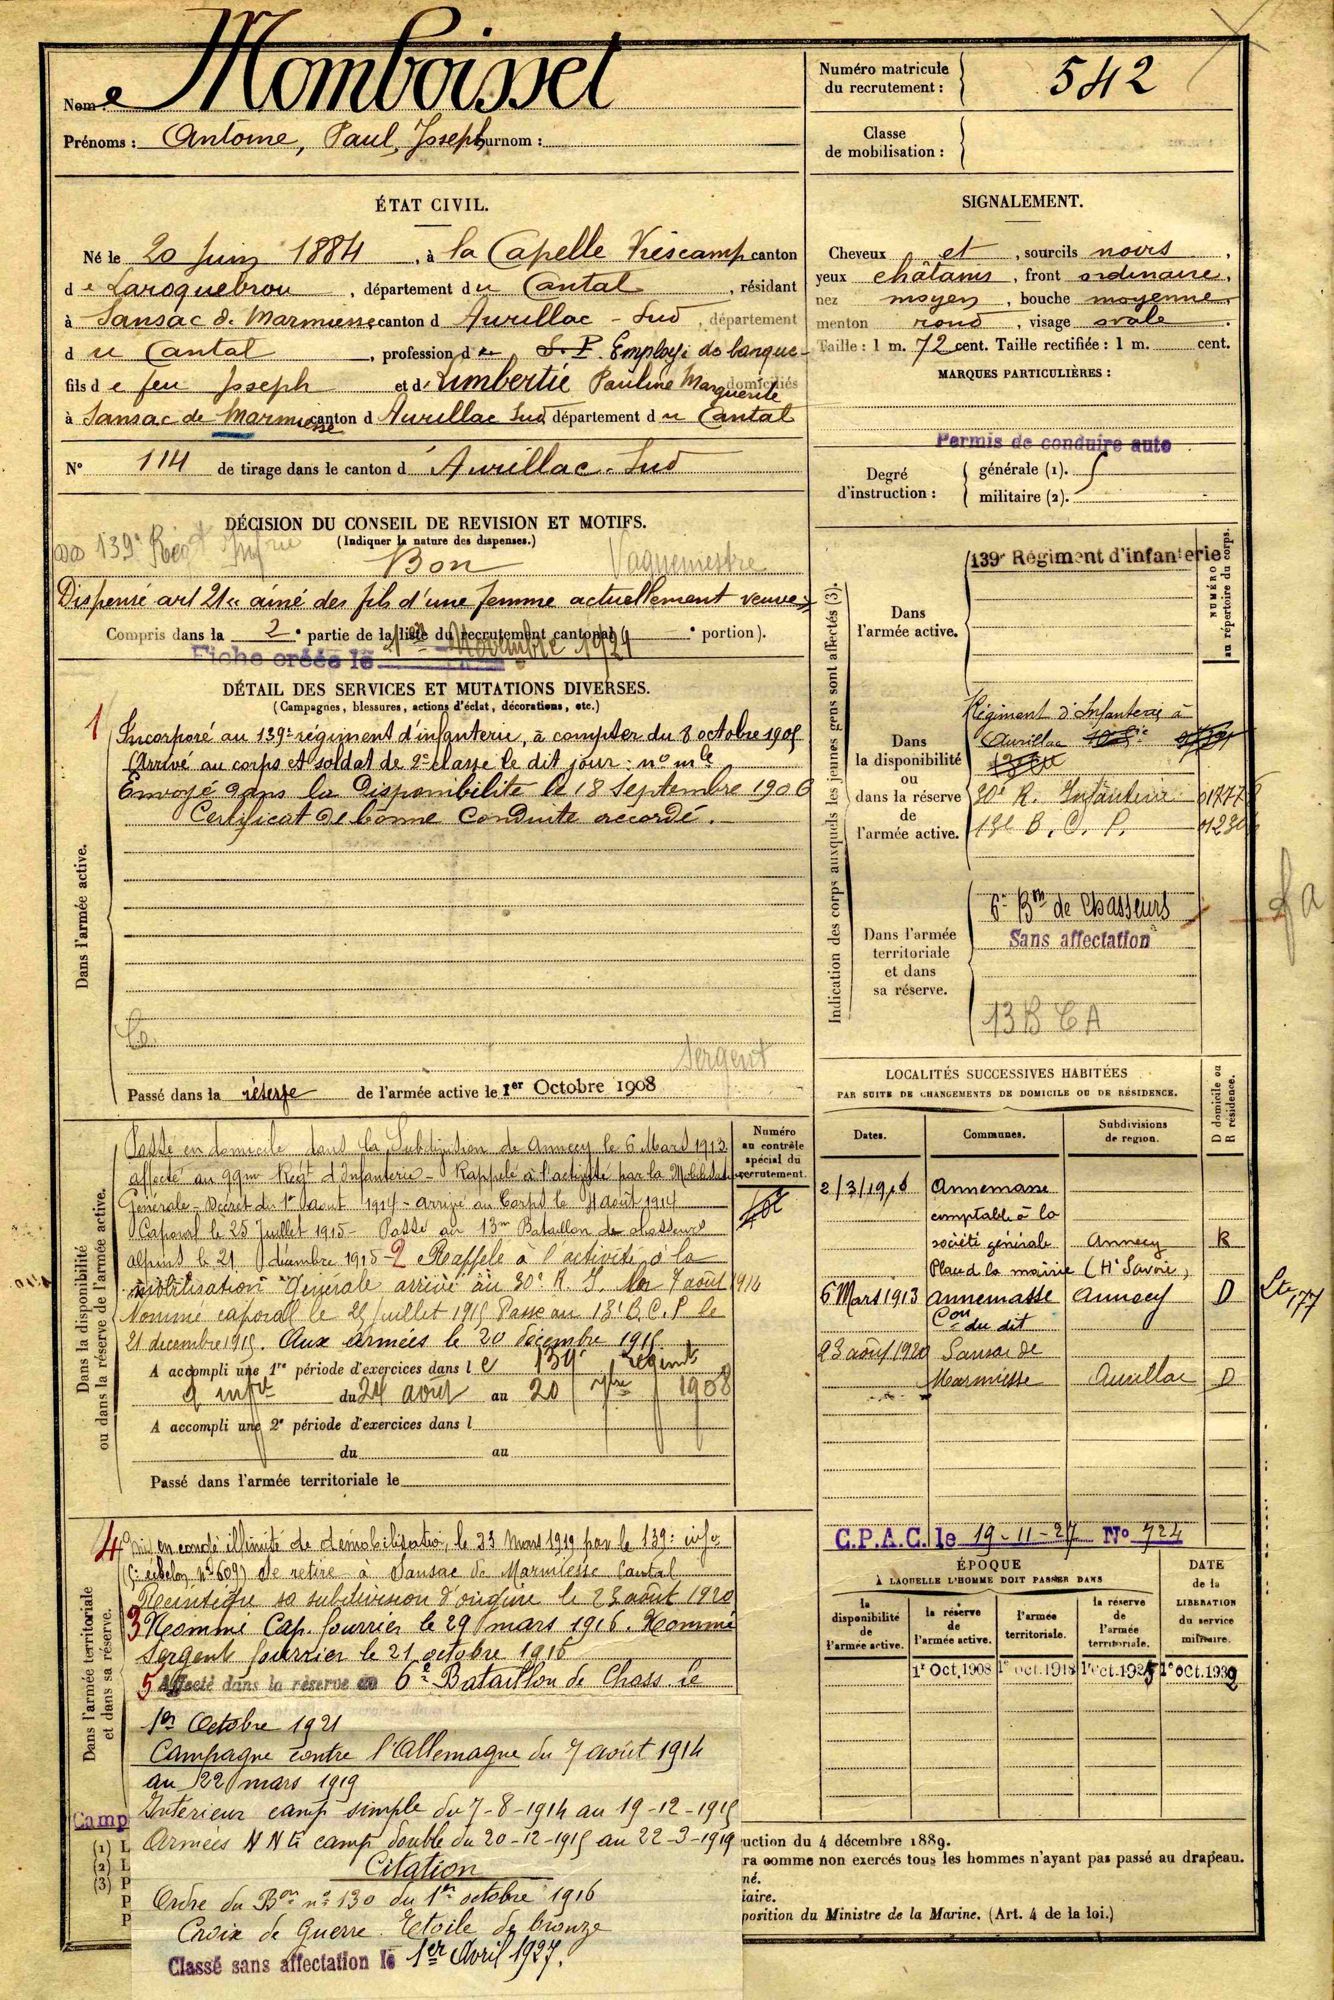 Nom : Momboisset
Prénoms : Antoine, Paul, Joseph Surnom :
Numéro matricule du recrutement : 542
Classe de mobilisation :
ÉTAT CIVIL.
Né le 20 Juin 1884, à la Capelle Viescamp canton
de Laroquebrou, département du Cantal, résidant
à Sansac de Marmiesse canton d'Aurillac-Sud, département
du Cantal, profession d S.P. Employé de banque
fils de feu Joseph et de Limbertie Pauline Marguerite domiciliés
à Sansac de Marmiesse canton d'Aurillac Sud département du Cantal
N° 114 de tirage dans le canton d'Aurillac-Sud
SIGNALEMENT.
Cheveux et, sourcils noirs,
yeux châtains, front ordinaire,
nez moyen, bouche moyenne,
menton rond, visage ovale.
Taille : 1 m. 72 cent. Taille rectifiée : 1 m. cent.
MARQUES PARTICULIÈRES :
Permis de conduire auto
Degré d'instruction :
générale (1).
militaire (2).
DÉCISION DU CONSEIL DE REVISION ET MOTIFS.
(Indiquer la nature des dispenses.)
139e Regt Infrie
Bon
Vaguemestre
Dispensé art 21 aîné des fils d'une femme actuellement veuve
Compris dans la 2e partie de la liste du recrutement cantonal ( e portion).
Fiche créée le 1er Novembre 1924
DÉTAIL DES SERVICES ET MUTATIONS DIVERSES.
(Campagnes, blessures, actions d'éclat, décorations, etc.)
Dans l'armée active.
1 Incorporé au 139e régiment d'infanterie, à compter du 8 octobre 1905
Arrivé au corps et soldat de 2e classe le dit jour : no mle
Envoyé dans la Disponibilité le 18 Septembre 1906
Certificat de bonne Conduite accordé.
Sergent
Passé dans la réserve de l'armée active le 1er Octobre 1908
Indication des corps auxquels les jeunes gens sont affectés (3).
NUMÉRO au répertoire du corps.
Dans l'armée active.
139e Régiment d'infanterie
Dans la disponibilité ou dans la réserve de l'armée active.
Régiment d'Infanterie à
Aurillac
30e R. Infanterie
13e B. C. P.
Dans l'armée territoriale et dans sa réserve.
6e Bon de Chasseurs
Sans affectation
13 B C A
LOCALITÉS SUCCESSIVES HABITÉES
PAR SUITE DE CHANGEMENTS DE DOMICILE OU DE RÉSIDENCE.
Dates. Communes. Subdivisions de region. D domicile ou R résidence.
Annemasse
comptable à la
société générale Annecy R
Place de la mairie (Hte Savoie)
6 Mars 1913 Annemasse Annecy D
Con du dit
23 août 1920 Sansac de
Marmiesse Aurillac D
C.P.A.C. le 19-11-27 No 724
Dans la disponibilité ou dans la réserve de l'armée active.
Numéro au contrôle spécial du recrutement.
Passé en domicile dans la Subdivision de Annecy le 6 Mars 1913
affecté au 99me Régt d'Infanterie - Rappelé à l'activité par la Mobilisation
Générale - Décret du 1er août 1914 - arrivé au Corps le 4 août 1914
Caporal le 25 Juillet 1915 - Passé au 13me Bataillon de chasseurs
alpins le 21 décembre 1915 - 2 Rappelé à l'activité à la
mobilisation Générale arrivé au 30e R. I. le 7 août 1914
Nommé caporal le 25 Juillet 1915 Passé au 13e B.C.P le
21 décembre 1915. Aux armées le 20 décembre 1915
A accompli une 1re période d'exercices dans le 139e régiment
d'infie du 24 août au 20 7bre 1908
A accompli une 2e période d'exercices dans l
du au
Passé dans l'armée territoriale le
Dans l'armée territoriale et dans sa réserve.
4 Mis en congé illimité de démobilisation, le 23 mars 1919 par le 139e infie
(5e échelon no 609) Se retire à Sansac de Marmiesse Cantal
Réintégré sa subdivision d'origine le 23 août 1920
3 Nommé Cap. fourrier le 29 mars 1916. Nommé
Sergent fourrier le 21 octobre 1916
5 Affecté dans la réserve au 6e Bataillon de Chass. le
1er Octobre 1921
Campagne contre l'Allemagne du 7 août 1914
au 22 mars 1919
Intérieur camp simple du 7-8-1914 au 19-12-1915
Armées N N Et camp double du 20-12-1915 au 22-3-1919
Citation
Ordre du Bon no 130 du 1er octobre 1916
Croix de Guerre. Etoile de bronze
Classé sans affectation le 1er Avril 1927.
ÉPOQUE
À LAQUELLE L'HOMME DOIT PASSER DANS
DATE de la LIBÉRATION du service militaire.
la disponibilité de l'armée active. la réserve de l'armée active. l'armée territoriale. la réserve de l'armée territoriale.
1er Oct. 1908 1er oct. 1918 1er oct. 1925 1er oct. 1932
Camp
(1) L
(2) L
(3) P
P
P
uction du 4 décembre 1889.
ra comme non exercés tous les hommes n'ayant pas passé au drapeau.
né.
iaire.
position du Ministre de la Marine. (Art. 4 de la loi.)